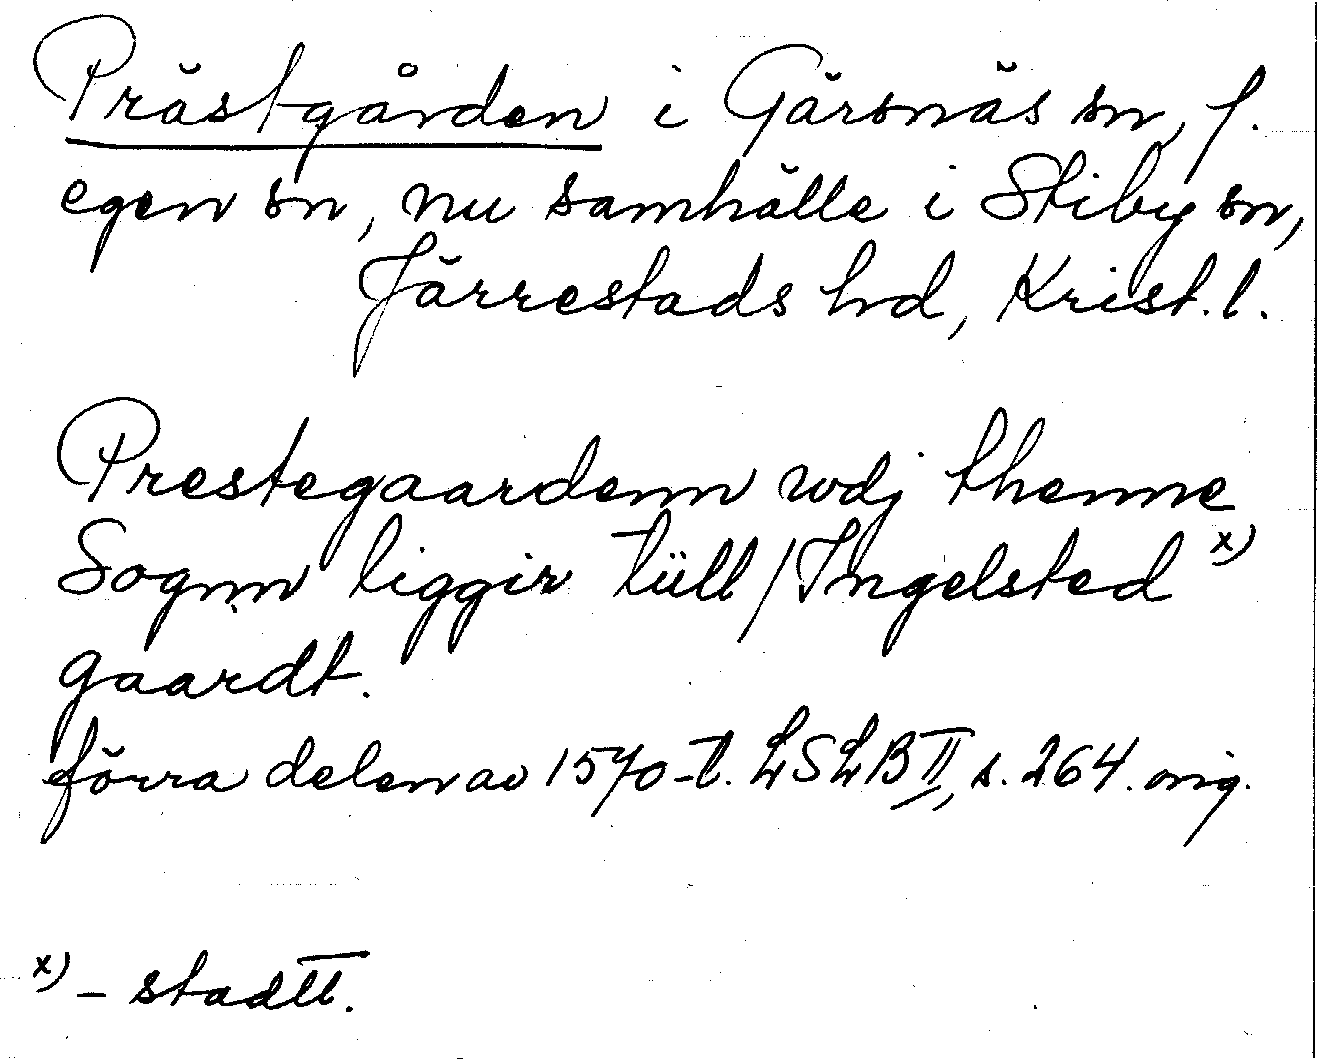 Prästgården i Gärsnäs sn, f.
egen sn, nu samhälle i Stiby sn,
Järrestads hd, Krist. l.
Prestegaardenn wdj thenne
Sognn liggir tüll / Ingelsted x)
gaardt.
förra delen av 1570-t. LSLB II, s. 264. orig.
x) – stadtt.